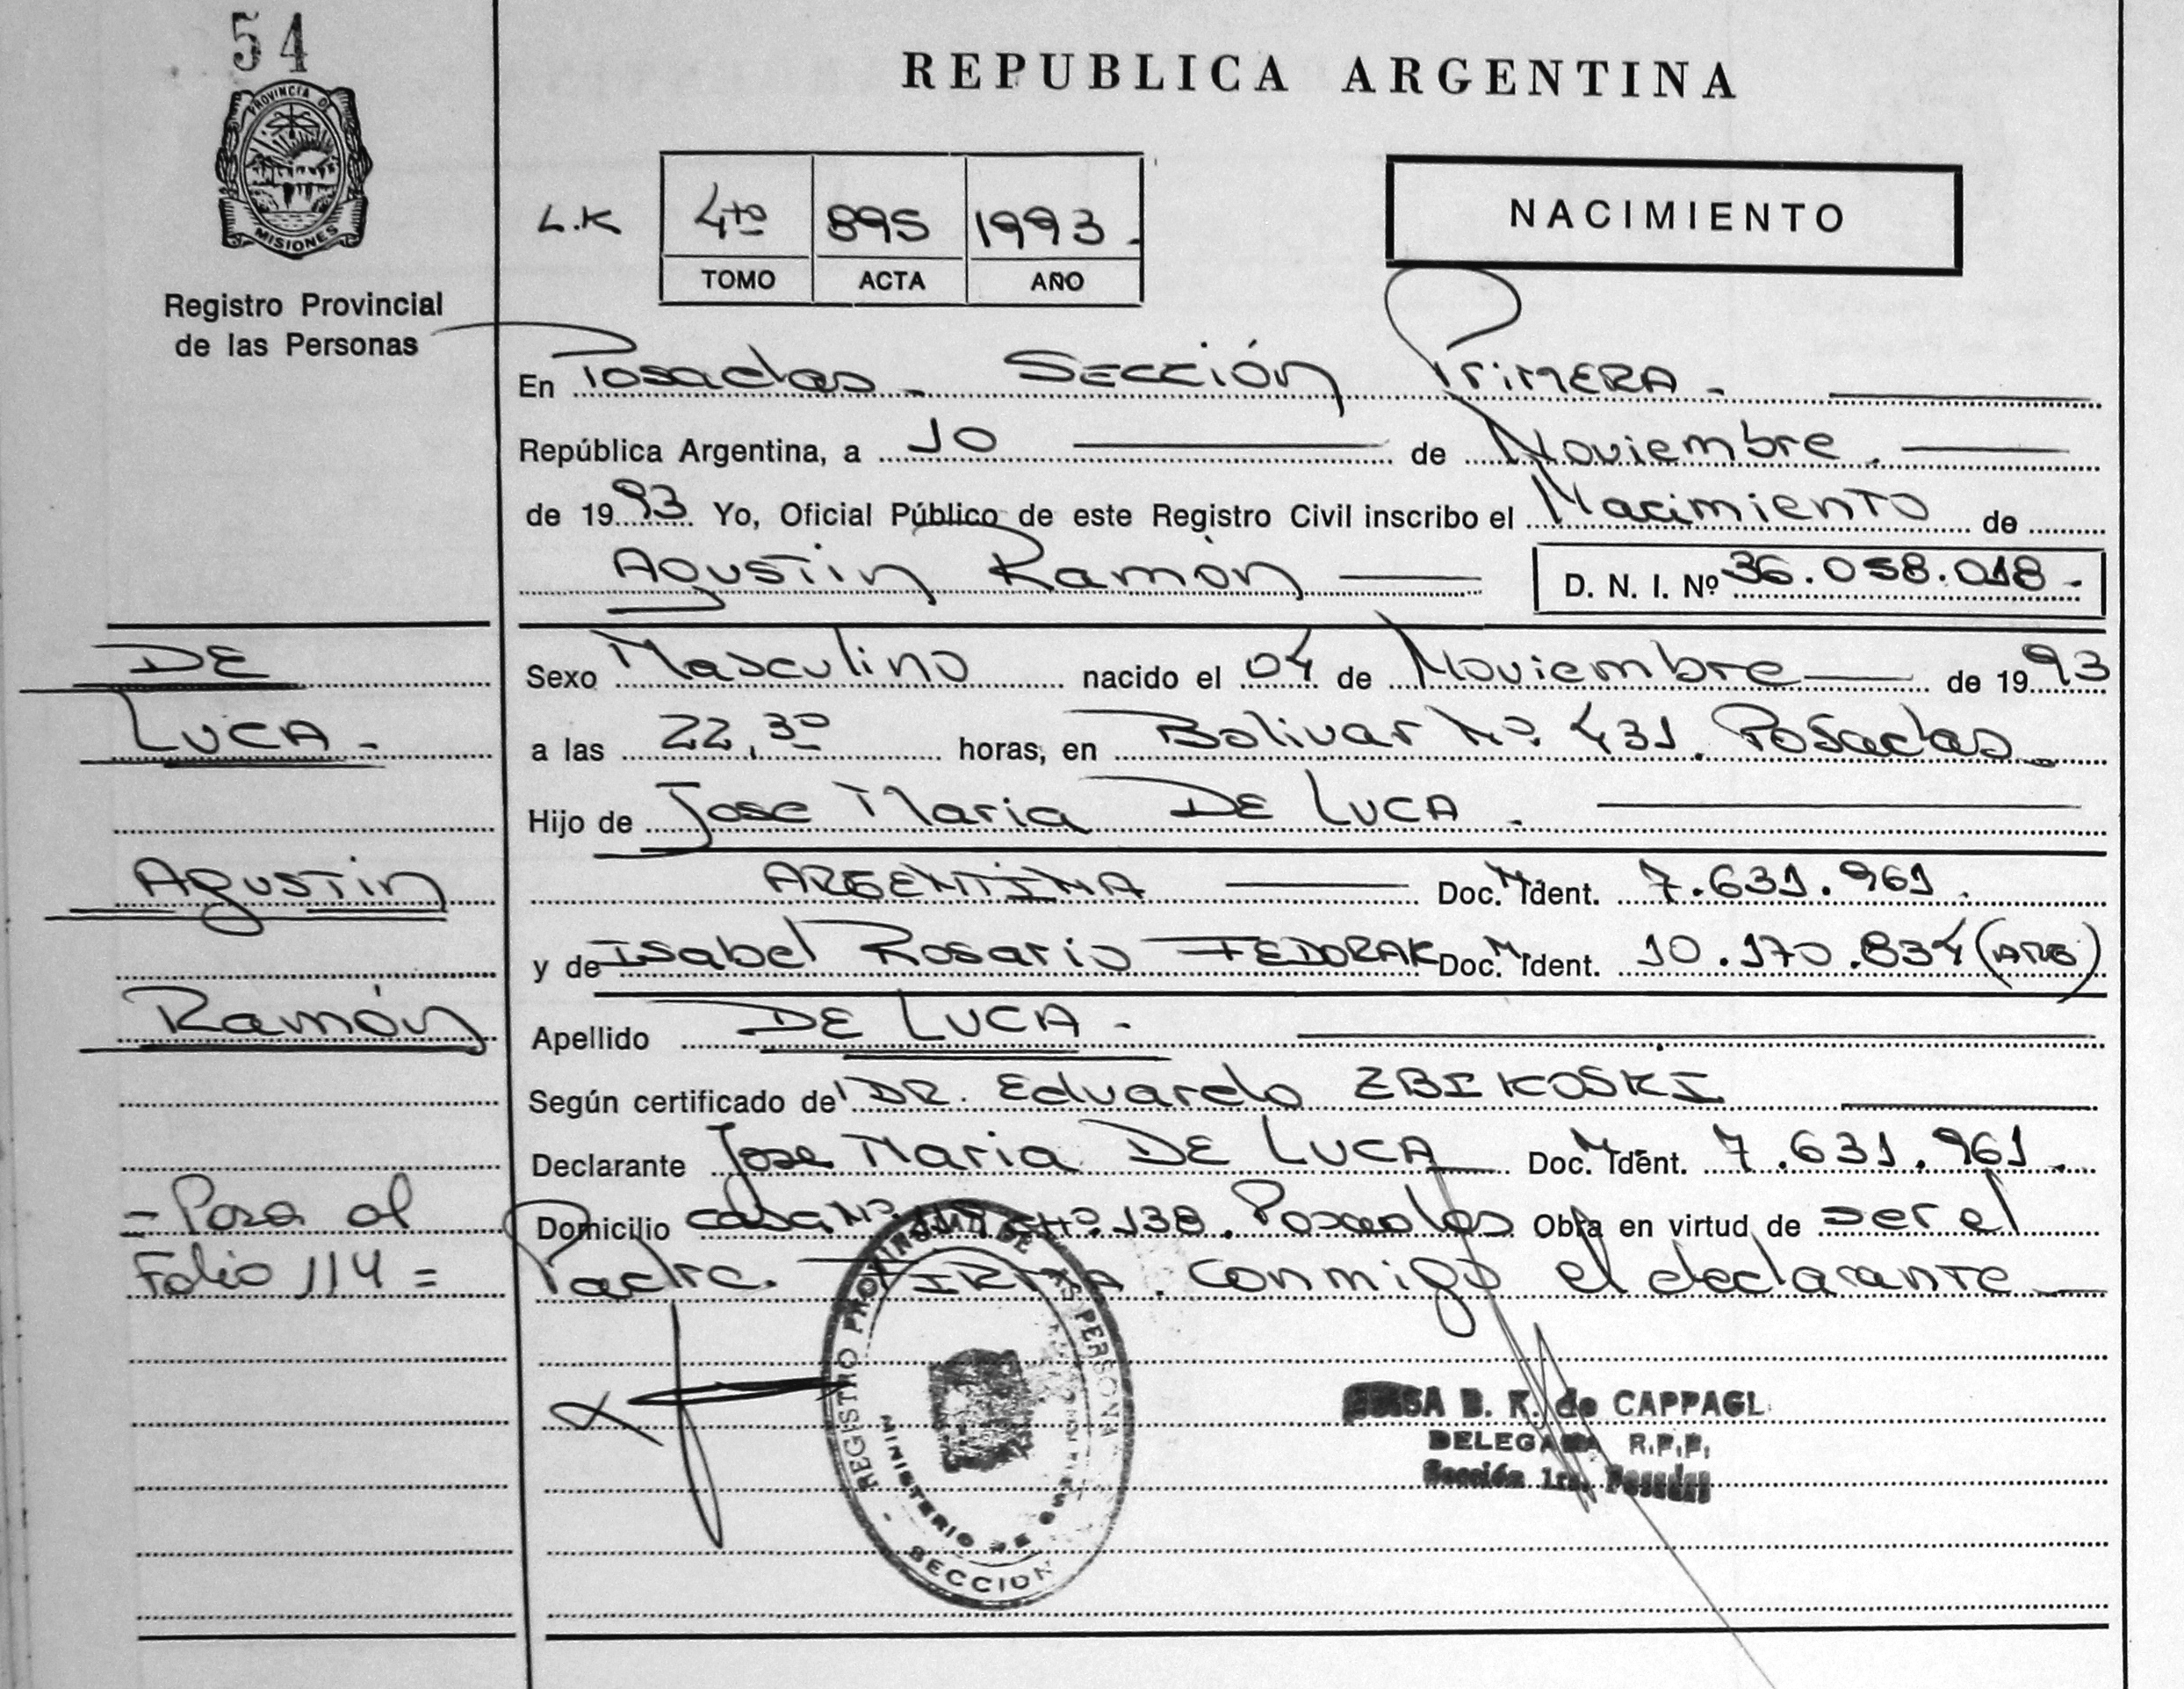 54
PROVINCIA D
MISIONES
Registro Provincial
de las Personas
REPUBLICA ARGENTINA
L.K 4to 895 1993.
TOMO ACTA AÑO
NACIMIENTO
En Posadas - Sección Primera -
República Argentina, a 10 de Noviembre.
de 1993 Yo, Oficial Público de este Registro Civil inscribo el Nacimiento de
Agustin Ramón D. N. I. Nº 36.058.018.-
DE
LUCA.-
Agustin
Ramón
- Pasa al
Folio 114 =
Sexo Masculino nacido el 04 de Noviembre de 1993
a las 22,30 horas, en Bolivar Nº 431. Posadas
Hijo de Jose Maria DE LUCA.
ARGENTINA Doc. M. Ident. 7.631.961.
y de Isabel Rosario FEDORAK Doc. M. Ident. 10.170.834 (ARG)
Apellido DE LUCA.-
Según certificado del DR. Eduardo ZBIKOSKI
Declarante Jose Maria DE LUCA Doc. M. Ident. 7.631.961.
Domicilio casa Nº 138. Posadas Obra en virtud de ser el
Padre. FIRMA. conmigo el declarante
REGISTRO PROVINCIAL DE LAS PERSONAS
MINISTERIO DE
SECCION
B. K. de CAPPAGL
DELEGADA R.P.P.
Sección 1ra. Posadas